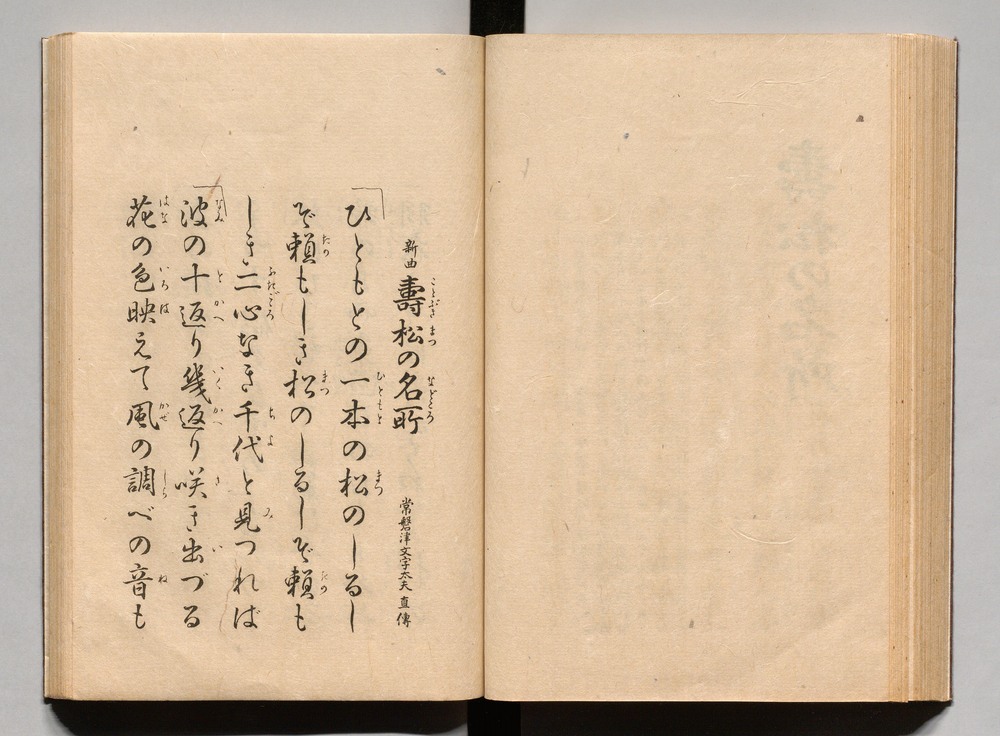 新曲 壽松の名所 常磐津文字太夫 直傳
ひともとの一本の松のしるし
ぞ頼もしき松のしるしぞ頼も
しき二心なき千代と見つれば
波の十返り幾返り咲き出づる
花の色映えて風の調べの音も